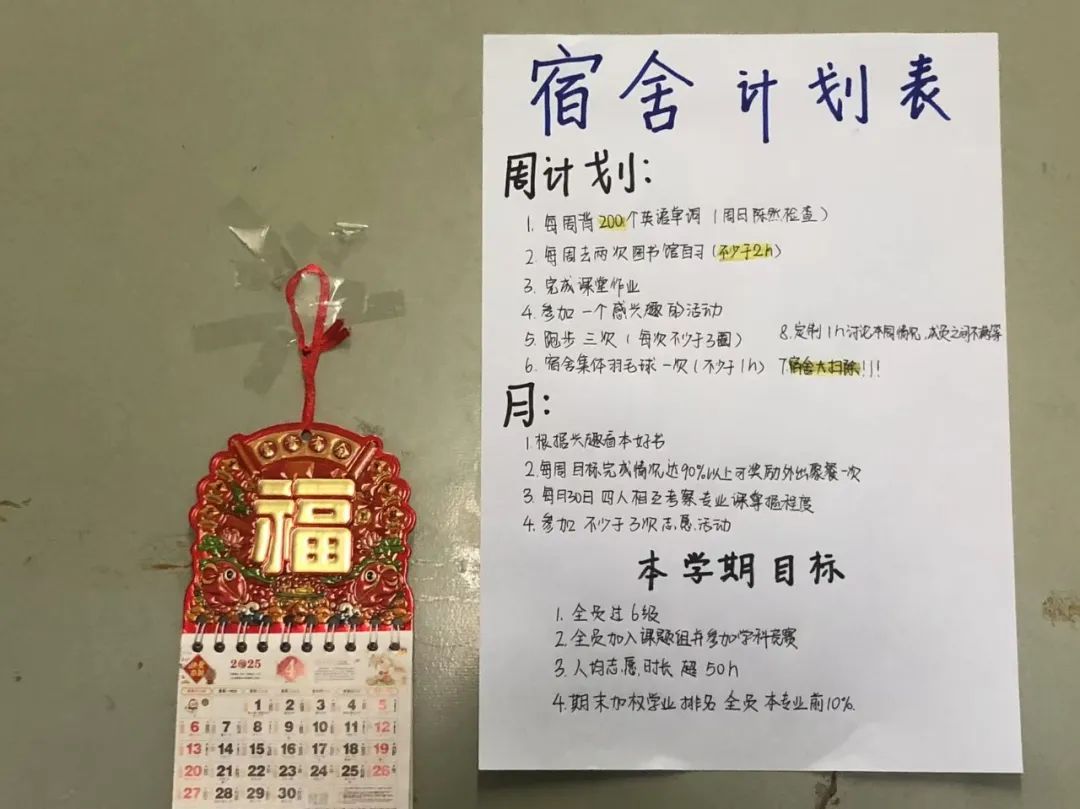 宿舍计划表
周计划:
1. 每周背200个英语单词(周日陈然检查)
2. 每周去两次图书馆自习(不少于2h)
3. 完成课堂作业
4. 参加一个感兴趣的活动
5. 跑步三次(每次不少于3圈)
6. 宿舍集体羽毛球一次(不少于1h)
7. 宿舍大扫除!!!
8. 定制1h讨论本周情况,成员之间不
月:
1. 根据兴趣看本好书
2. 每周目标完成情况达90%以上可奖励外出聚餐一次
3. 每月30日四人相互考察专业课掌握程度
4. 参加不少于3次志愿活动
本学期目标
1. 全员过6级
2. 全员加入课题组并参加学科竞赛
3. 人均志愿时长超50h
4. 期末加权学业排名全员本专业前10%.
福
2025 4
1 2 3 4 5
6 7 8 9 10 11 12
13 14 15 16 17 18 19
20 21 22 23 24 25 26
27 28 29 30